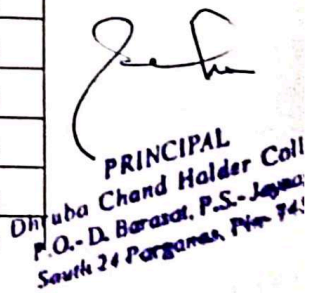 PRINCIPAL
Dhruba Chand Halder Coll
P.O.- D. Barasat, P.S.- Jayna
South 24 Parganas, Pin- 743